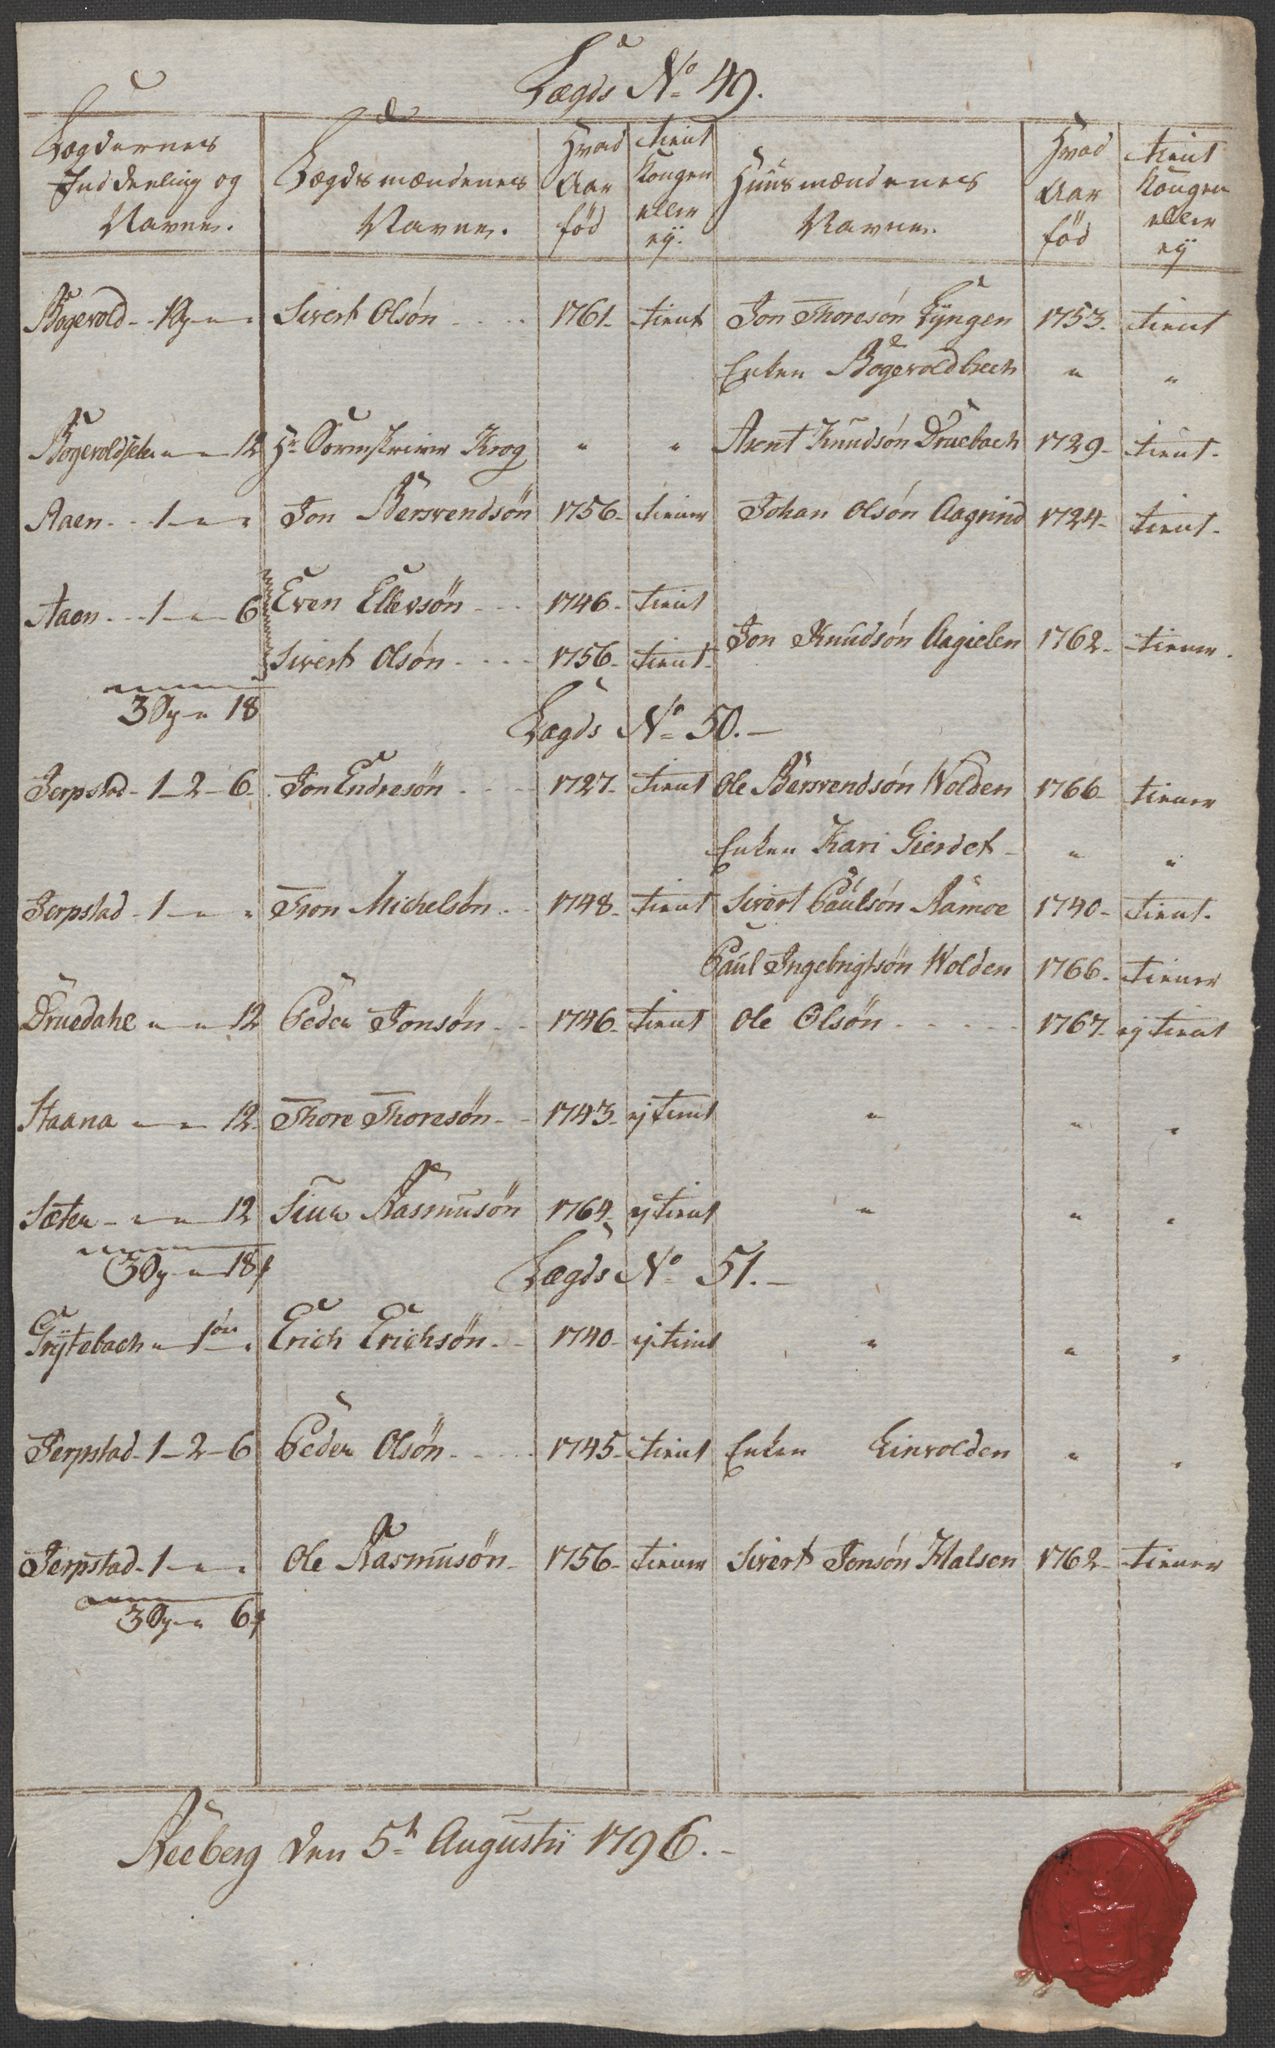 Lægds No 49.
Lægdernes Inddeeling og Navne. | Lægdsmændenes Navne. | Hvad Aar fød | tient Kongen eller ey. | Huusmændenes Navne. | Hvad Aar fød | tient Kongen eller ey
Bøgevold - 1 Øy " " | Sivert Olsøn | 1761 - | tient | Jon Thoresøn Lyngen | 1753 - | tient
Enken Bøgevoldbech | " | "
Bøgevoldsæter " " 12 | Hr Krog | " | " | Arnt Knudsøn Druebach | 1729 - | tient -
Aaen - 1 " " | Jon Bersvendsøn | 1756 - | tiener | Johan Olsøn Aagrind | 1724 - | tient -
Aaen - 1 " 6 | Even Ellevsøn | 1746 - | tient
Sivert Olsøn | 1756 - | tient - | Jon Knudsøn Aagielen | 1762 - | tiener -
3 Øy " 18
Lægds No 50. -
Jerpstad - 1 - 2 - 6 | Jon Endresøn | 1727 - | tient | Ole Bersvendsøn Wolden | 1766 - | tiener
Enken Kari Gierdet - | " | "
Jerpstad - 1 " " | Tron Michelsøn | 1748 - | tient | Sivert Paulsøn Ramoe | 1740 - | tient -
Paul Ingebrigtsøn Wolden | 1766 - | tiener
Druedahl " " 12 | Peder Jonsøn | 1746 - | tient | Ole Olsøn | 1767 - | ej tient
Staana " " 12 - | Thore Thoresøn | 1743 - | ej tient | " | " | "
Sæter - " " 12 | Siur Rasmusøn | 1764 | ej tient | " | " | "
3 Øy " 18
Lægds No 51. -
Grytebach " 1 " | Erich Erichsøn | 1740 - | ej tient | " | " | "
Jerpstad - 1 - 2 - 6 | Peder Olsøn | 1745 - | tient | Enken Leinvolden | " | "
Jerpstad - 1 " " | Ole Rasmusøn - | 1756 - | tiener | Sivert Jonsøn Halsen | 1762 - | tiener
3 Øy " 6
Reeberg den 5t Augustii 1796. -